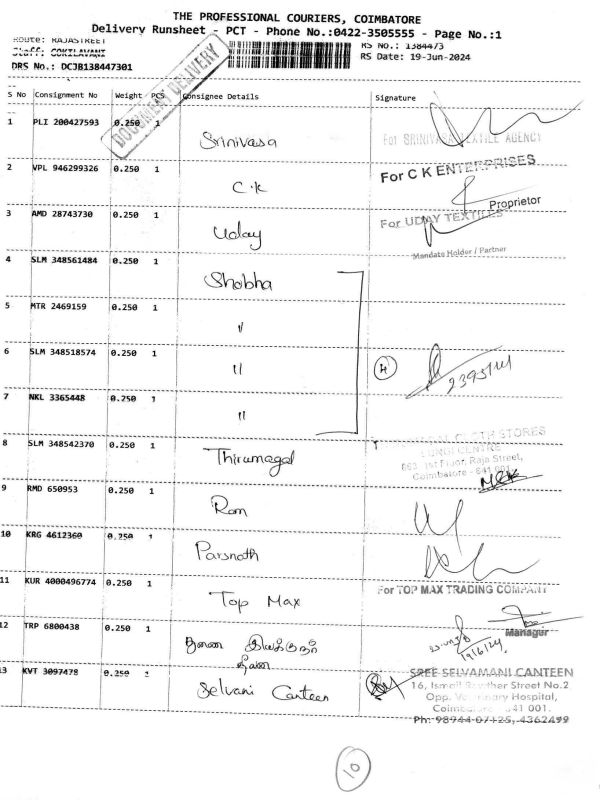 THE PROFESSIONAL COURIERS, COIMBATORE
Delivery Runsheet - PCT - Phone No.:0422-3505555 - Page No.:1
Route: RAJASTREET
RS No.: 1384473
Staff: GOKILAVANI
RS Date: 19-Jun-2024
DRS No.: DCJB138447301
DOCUMENT DELIVERY
S No Consignment No Weight PCS Consignee Details Signature
1 PLI 200427593 0.250 1 Srinivasa For SRINIVASA TEXTILE AGENCY
2 VPL 946299326 0.250 1 C.K For C K ENTERPRISES
Proprietor
3 AMD 28743730 0.250 1 Uday For UDAY TEXTILES
Mandate Holder / Partner
4 SLM 348561484 0.250 1 Shobha
5 MTR 2469159 0.250 1 "
6 SLM 348518574 0.250 1 " 4
7 NKL 3365448 0.250 1 "
8 SLM 348542370 0.250 1 Thirumagal CLOTH STORES
LUNGI CENTRE
Raja Street,
Coimbatore - 641 001.
9 RMD 650953 0.250 1 Ram
10 KRG 4612360 0.250 1 Parsnath
11 KUR 4000496774 0.250 1 Top Max For TOP MAX TRADING COMPANY
Manager
12 TRP 6800438 0.250 1 துணை இயக்குநர்
19/6/24
13 KVT 3097478 0.250 1 Selvani Canteen SREE SELVAMANI CANTEEN
16, Ismail Rowther Street No.2
Opp. Veterinary Hospital,
Coimbatore - 641 001.
Ph: 98944-07125, 4362499
10